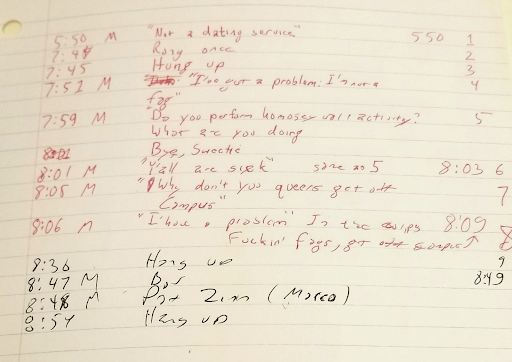 5:50 M "Not a dating service" 550 1
7:44 Rang once 2
7:45 Hung up 3
7:51 M "I've got a problem: I'm not a 4
fag"
7:59 M "Do you perform homosexual activity? 5
What are you doing
Bye, Sweetie
8:01 M "Y'all are sick" same as 5 8:03 6
8:05 M "Why don't you queers get off 7
Campus"
8:06 M "I have a problem" In the 8:09 8
Fuckin' fags, get off campus
8:36 Hang up 9
8:47 M 8:49
8:48 M Pat Zinn
8:54 Hang up